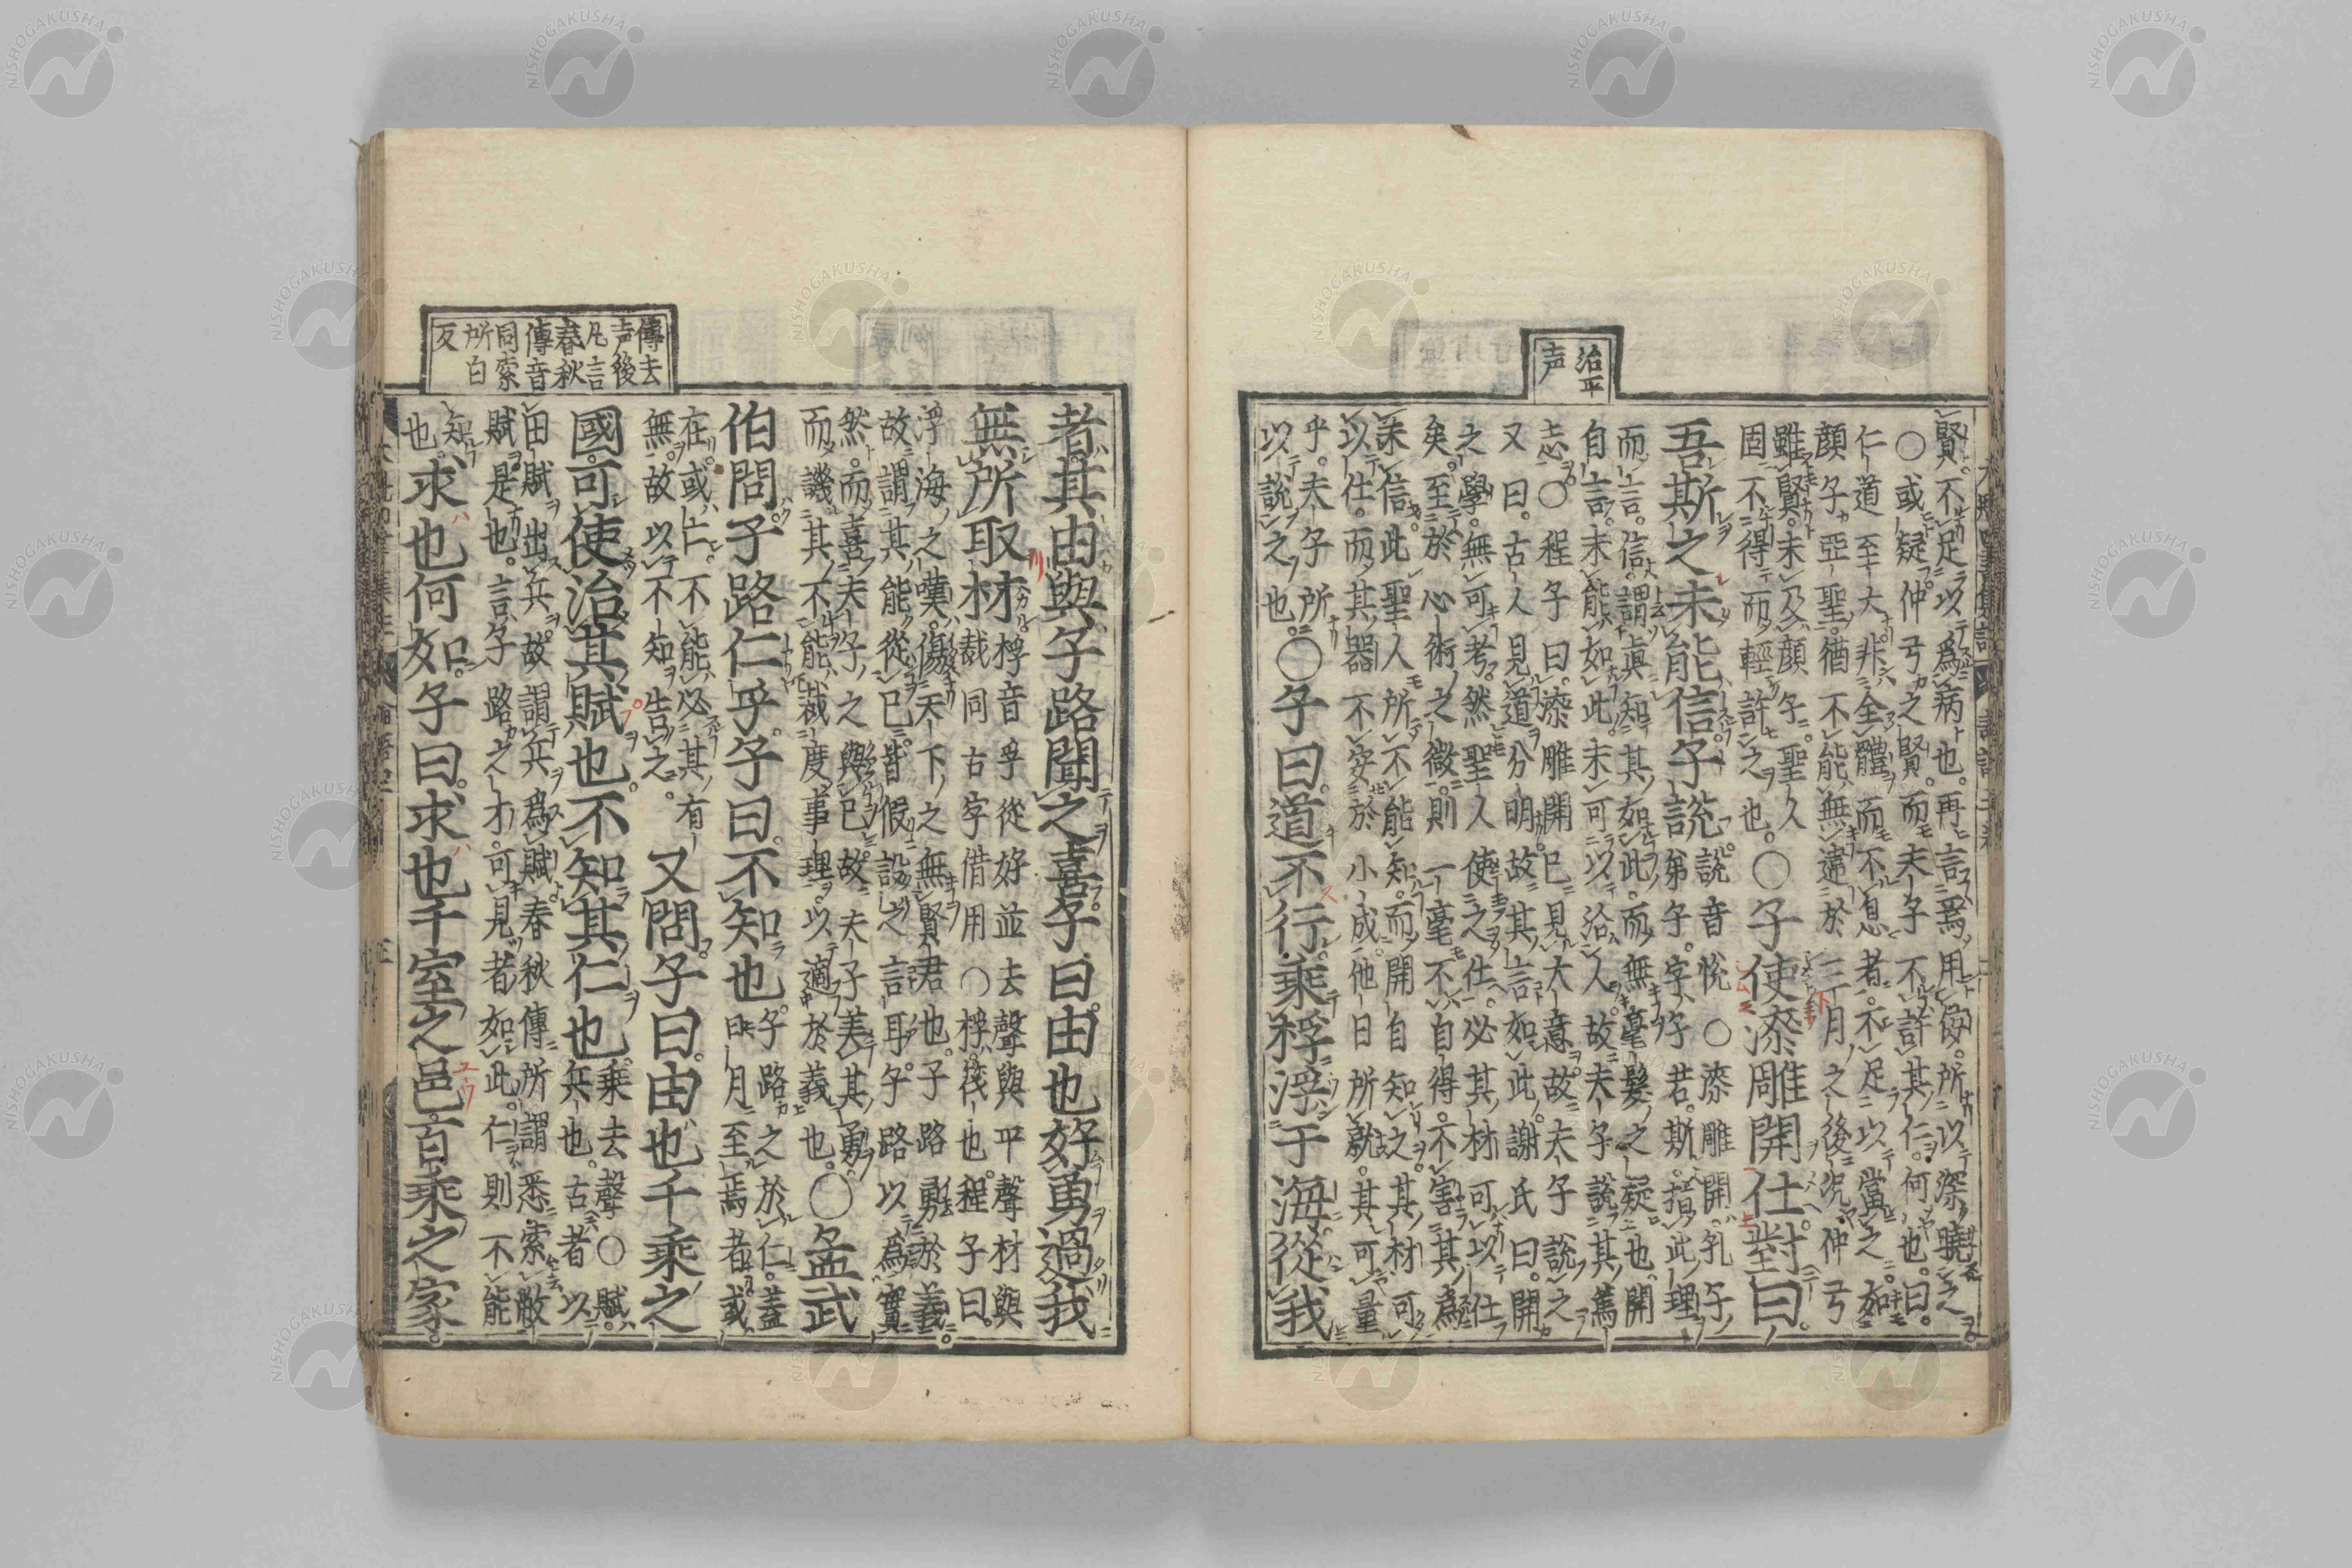 治平
声
賢。不足以爲病也。再言焉用佞。所以深曉之
○或疑仲弓之賢。而夫子不許其仁。何也。曰。
仁道至大。非全體而不息者。不足以當之。如
顏子亞聖。猶不能無違於三月之後。況仲弓
雖賢。未及顏子。聖人
固不得而輕許之也。
○子使漆雕開仕。對曰。
吾斯之未能信子說
說音悅○漆雕開。孔子
弟子。字子若。斯。指此理
而言。信。謂眞知其如此。而無毫髮之疑也。開
自言。未能如此。未可以治人。故夫子說其篤
志。○程子曰。漆雕開已見大意。故夫子說之
又曰。古人見道分明。故其言如此。謝氏曰。開
之學。無可考。然聖人使之仕。必其材可以仕
矣。至於心術之微。則一毫不自得。不害其爲
未信。此聖人所不能知。而開自知之。其材可
以仕。而其器不安於小成。他日所就。其可量
乎。夫子所
以說之也。
○子曰。道不行。乘桴浮于海從我
傳去
声後
凡言
春秋
傳音
同索
所白
反
者其由與子路聞之喜子曰。由也好勇過我
無所取材
桴音孚從好並去聲與平聲材與
裁同古字借用○桴。筏也。程子曰。
浮海之嘆。傷天下之無賢君也。子路勇於義。
故謂其能從己。皆假設之言耳。子路以爲實
然。而喜夫子之與己。故夫子美其勇
而譏其不能裁度事理。以適於義也。
○孟武
伯問子路仁乎。子曰。不知也。
子路之於仁。蓋
日月至焉者或
在。或亡。不能必其有
無。故以不知告之。
又問。子曰。由也千乘之
國。可使治其賦也。不知其仁也。
乘去聲○賦。
兵也。古者以
田賦出兵。故謂兵爲賦春秋傳所謂悉索敝
賦是也。言子路之才。可見者如此。仁則不能
知
也。
求也何如。子曰。求也千室之邑。百乘之家。